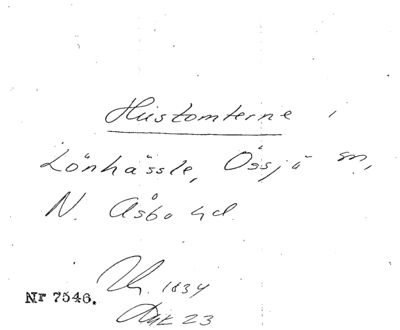 Hustomterne i
Lönhässle, Össjö sn,
N. Åsbo hd
1834
Nr 7546.
23